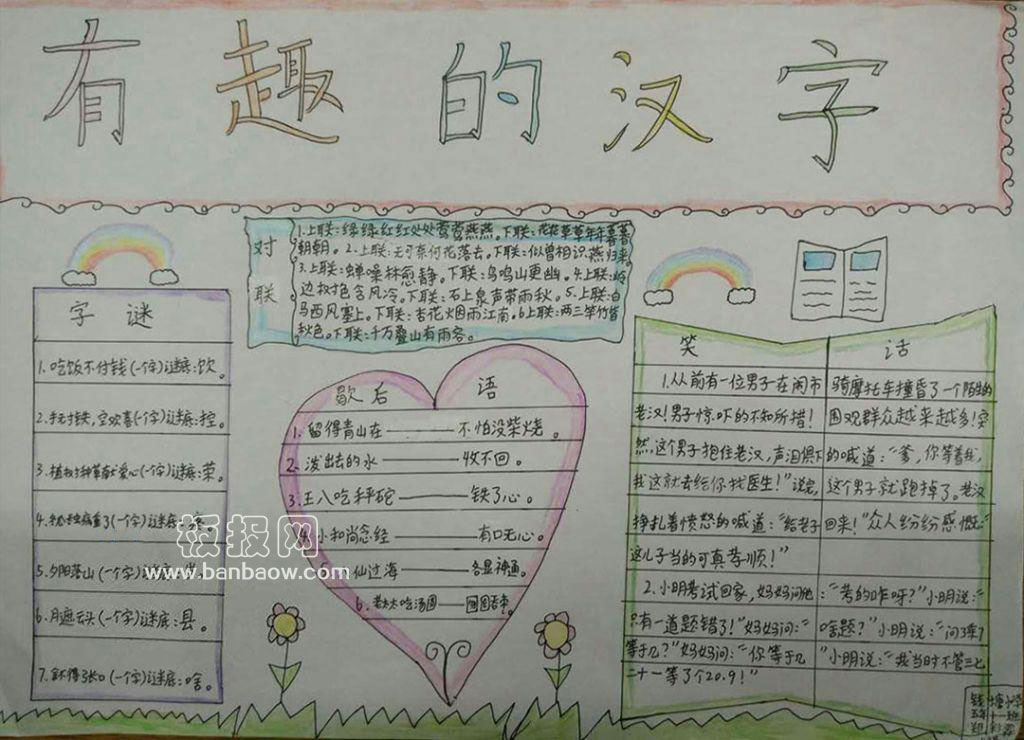 有趣的汉字
对联
1.上联:绿绿红红处处莺莺燕燕。下联:花花草草年年暮暮
朝朝。2.上联:无可奈何花落去。下联:似曾相识燕归来
3.上联:蝉噪林愈静。下联:鸟鸣山更幽。4.上联:岭
边树色含风冷。下联:石上泉声带雨秋。5.上联:白
马西风塞上。下联:杏花烟雨江南。6上联:两三竿竹皆
秋色。下联:千万叠山有雨容。
字谜
1.吃饭不付钱(一个字)谜底:饮。
2.手无寸铁,空欢喜(一个字)谜底:控。
3.植树种草献爱心(一个字)谜底:荣。
4.(一个字)谜底:
5.夕阳落山(一个字)谜底:
6.月遮云头(一个字)谜底:县。
7.(一个字)谜底:啥。
歇后语
1.留得青山在———不怕没柴烧。
2.泼出去的水———收不回。
3.王八吃秤砣———铁了心。
4.小和尚念经———有口无心。
仙过海———各显神通。
6.老太太吃汤圆—囫囵吞枣。
笑话
1.从前有一位男子在闹市骑摩托车撞昏了一个陌生的
老汉!男子惊吓的不知所措!围观群众越来越多!突
然,这个男子抱住老汉,声泪俱下的喊道:“爹,你等着我,
我这就去给你找医生!”说完,这个男子就跑掉了。老汉
挣扎着愤怒的喊道:“给老子回来!”众人纷纷感慨:“
这儿子当的可真孝顺!”
2.小明考试回家,妈妈问他:“考的咋呀?”小明说:“
只有一道题错了!”妈妈问:“啥题?”小明说:“问3乘7
等于几?”妈妈问:“你等于几”小明说:“我当时不管三七
二十一等了个20.9!”
板报网
www.banbaow.com